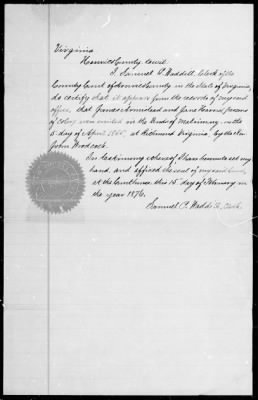 Virginia
Henrico County Court.
I, Samuel P. Waddill, Clerk of the
County Court of Henrico County in the State of Virginia,
do certify that it appears from the records of my said
office, that James Armistead and Jane Pearce, persons
of Color, were united in the Bonds of Matrimony, on the
5 day of April 1866, at Richmond Virginia, by the Rev
John Woodcock.
In testimony whereof, I have hereunto set my
hand, and affixed the seal of my said Court,
at the Courthouse this 15 day of February in
the year 1876.
Samuel P. Waddill, Clerk